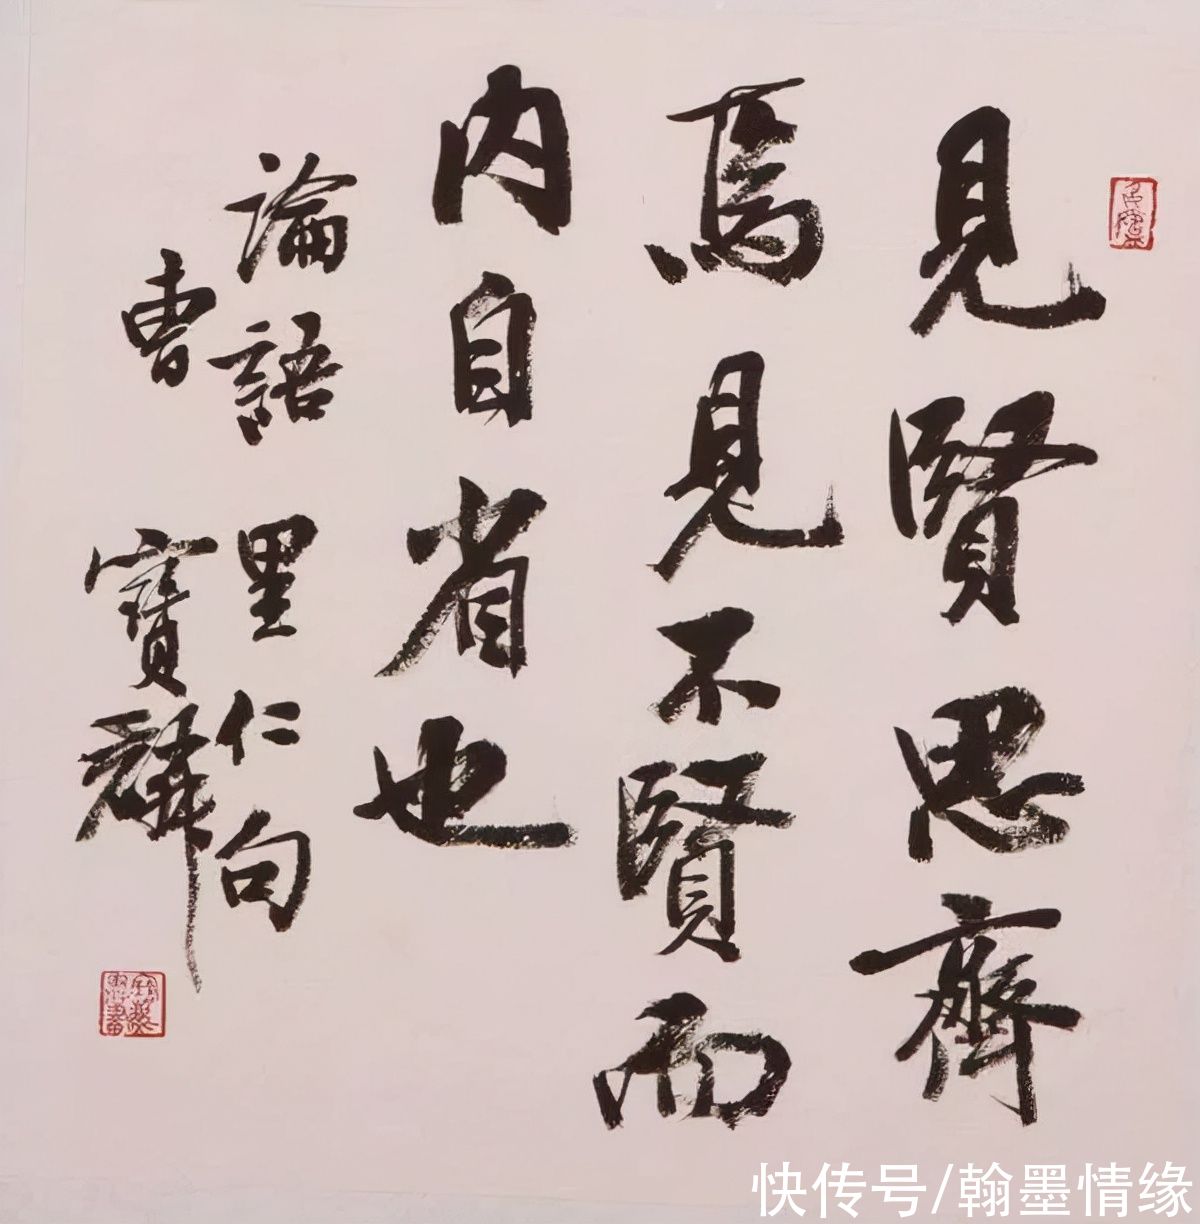 見賢思齊
焉見不賢而
內自省也
論語里仁句
曹寶麟
快传号/翰墨情缘